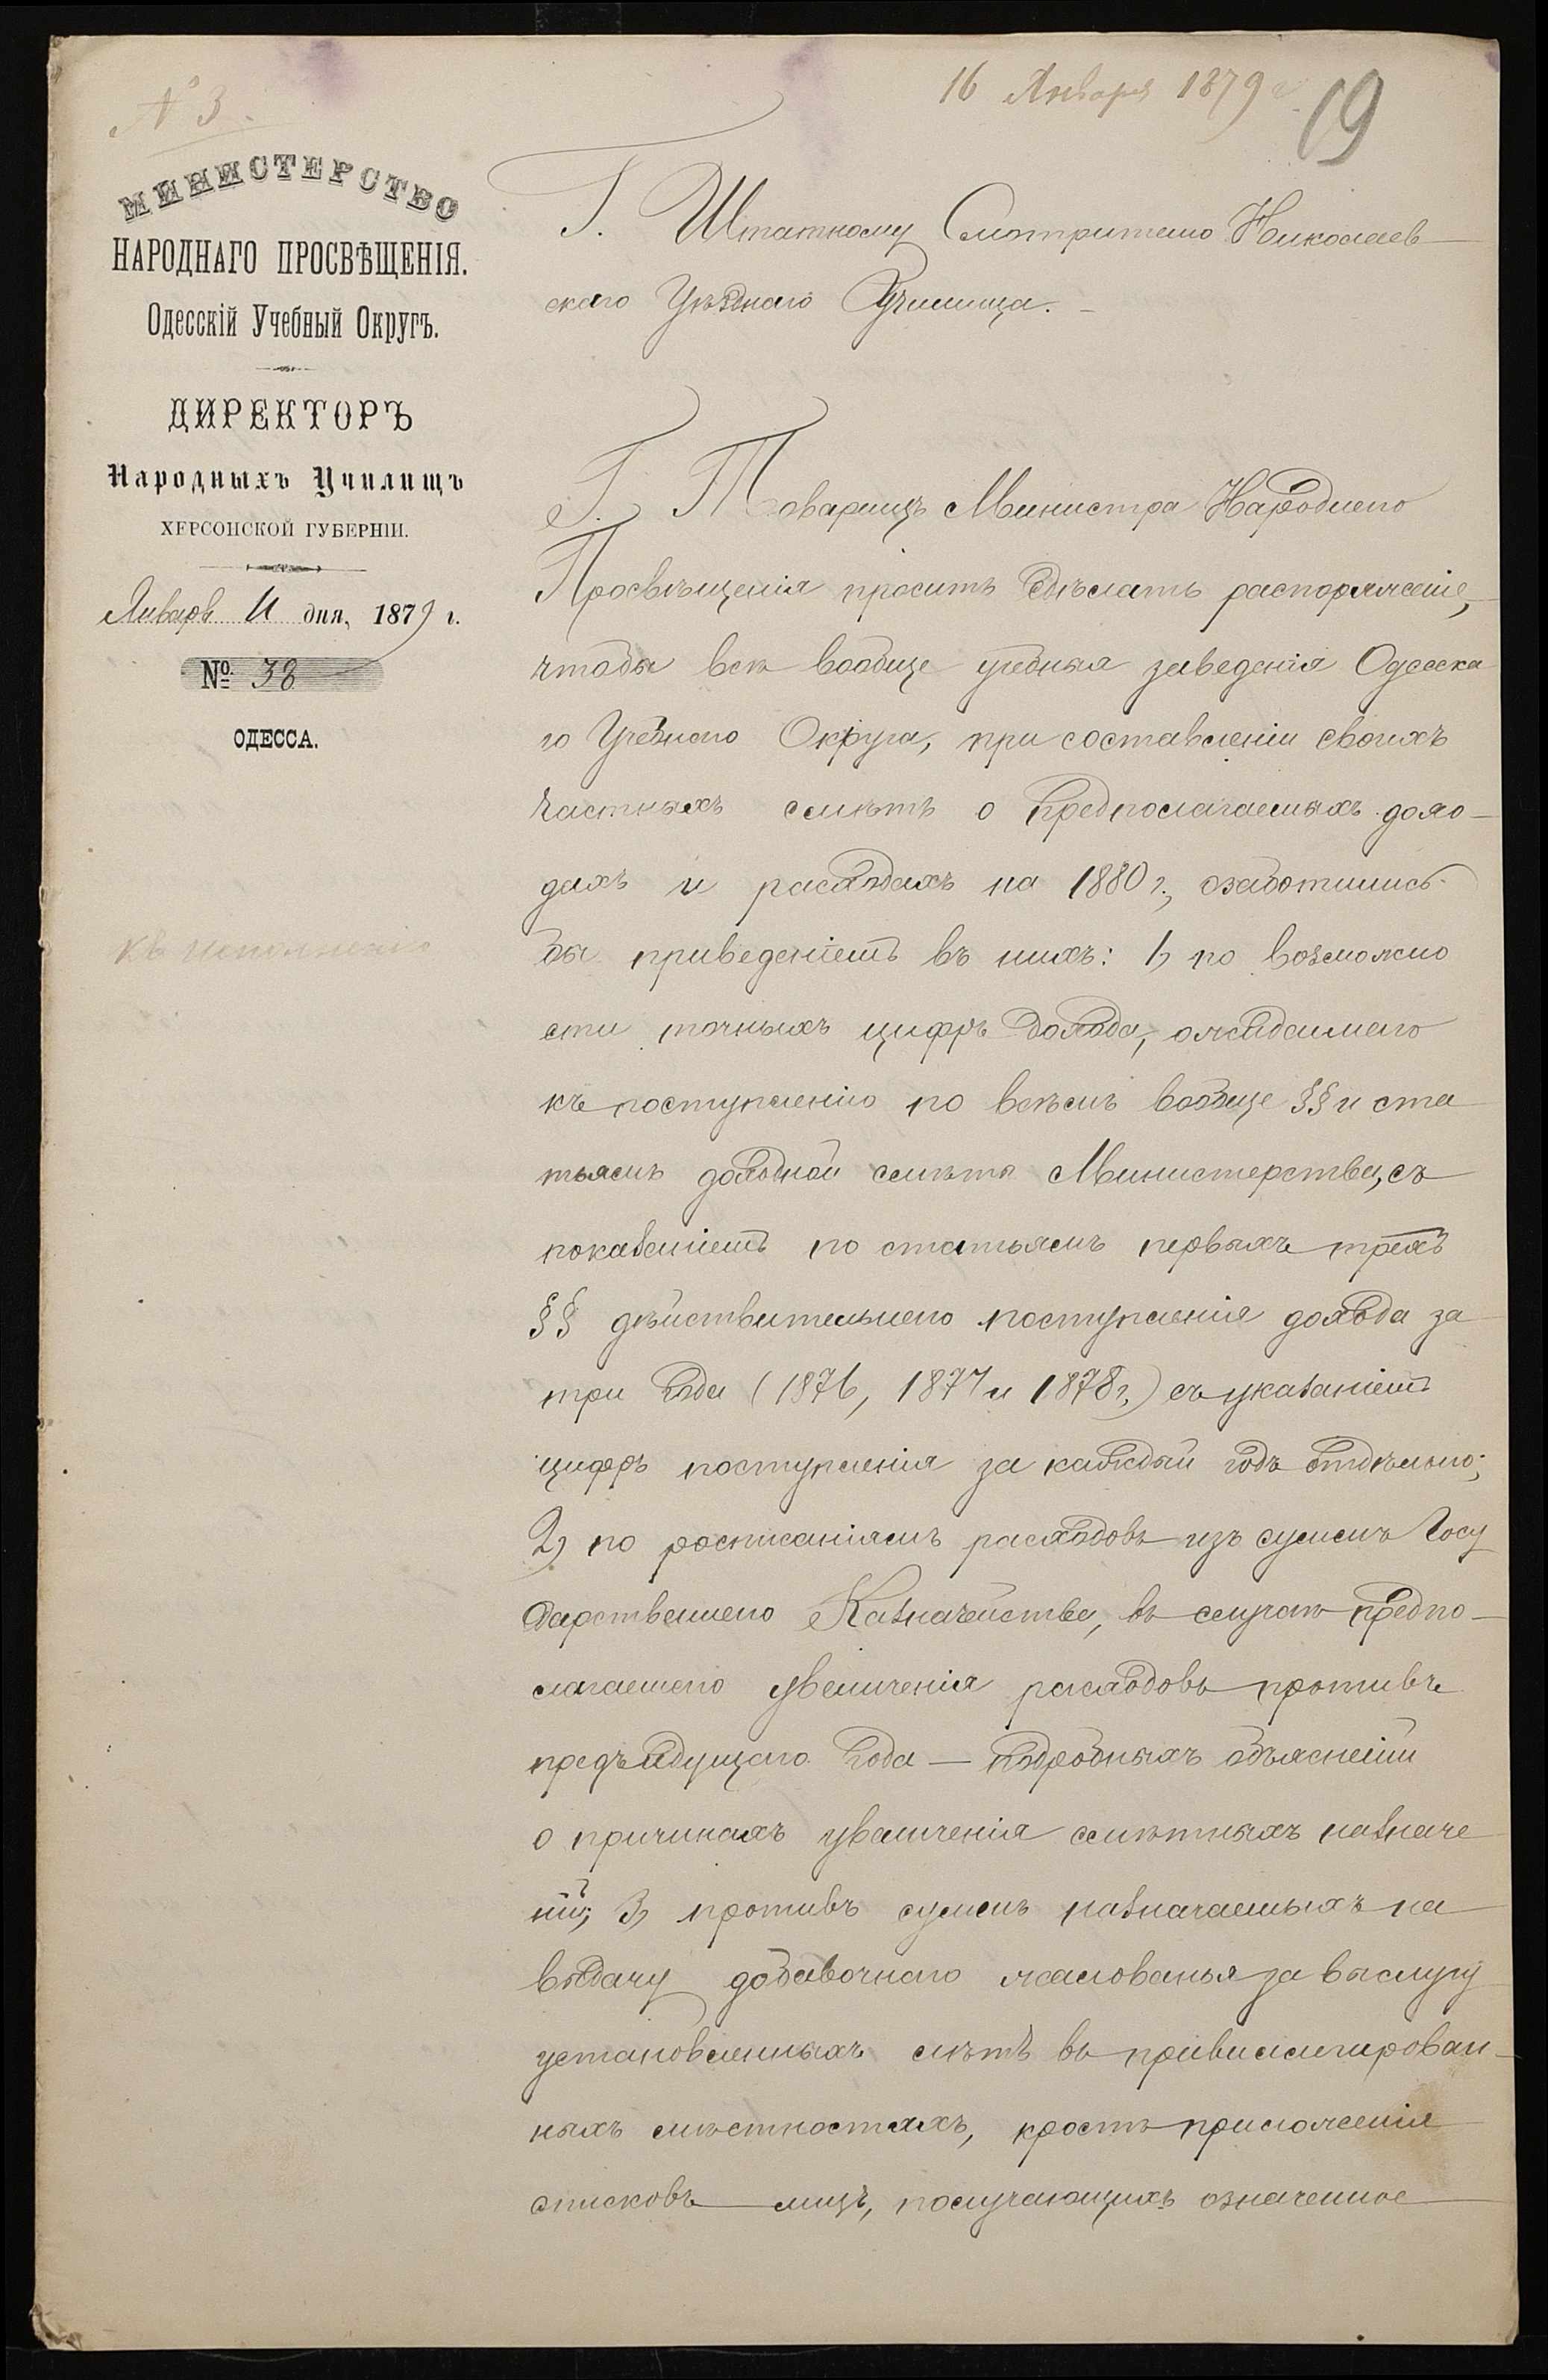 № 3.
16 Января 1879 г.
19
МИНИСТЕРСТВО
НАРОДНАГО ПРОСВѢЩЕНІЯ.
Одесскій Учебный Округъ.
ДИРЕКТОРЪ
Народныхъ Училищъ
ХЕРСОНСКОЙ ГУБЕРНІИ.
Января 11 дня, 1879 г.
№ 38
ОДЕССА.
къ исполненію
Г. Штатному Смотрителю Николаев
скаго Уѣзднаго Училища.
Г. Товарищъ Министра Народнаго
Просвѣщенія проситъ сдѣлать распоряженіе,
чтобы всѣ вообще учебныя заведенія Одесска
го Учебнаго Округа, при составленіи своихъ
частныхъ смѣтъ о предполагаемыхъ дохо-
дахъ и расходахъ на 1880 г., озаботились
бы приведеніемъ въ нихъ: 1, по возможно
сти точныхъ цифръ дохода, ожидаемаго
къ поступленію по всѣмъ вообще §§ и ста
тьямъ доходной смѣты Министерства, съ
показаніемъ по статьямъ первыхъ трехъ
§§ дѣйствительнаго поступленія дохода за
три года (1876, 1877 и 1878 г.) съ указаніемъ
цифръ поступленія за каждый годъ отдѣльно;
2) по росписаніямъ расходовъ изъ суммъ Госу
дарственнаго Казначейства, въ случаѣ предпо-
лагаемаго увеличенія расходовъ противъ
предъидущаго года — подробныхъ объясненій
о причинахъ увеличенія смѣтныхъ назначе
ній; 3, противъ суммъ назначаемыхъ на
выдачу добавочнаго жалованья за выслугу
установленныхъ лѣтъ въ привиллегирован-
ныхъ мѣстностяхъ, кромѣ приложенія
списковъ лицъ, получающихъ означенное